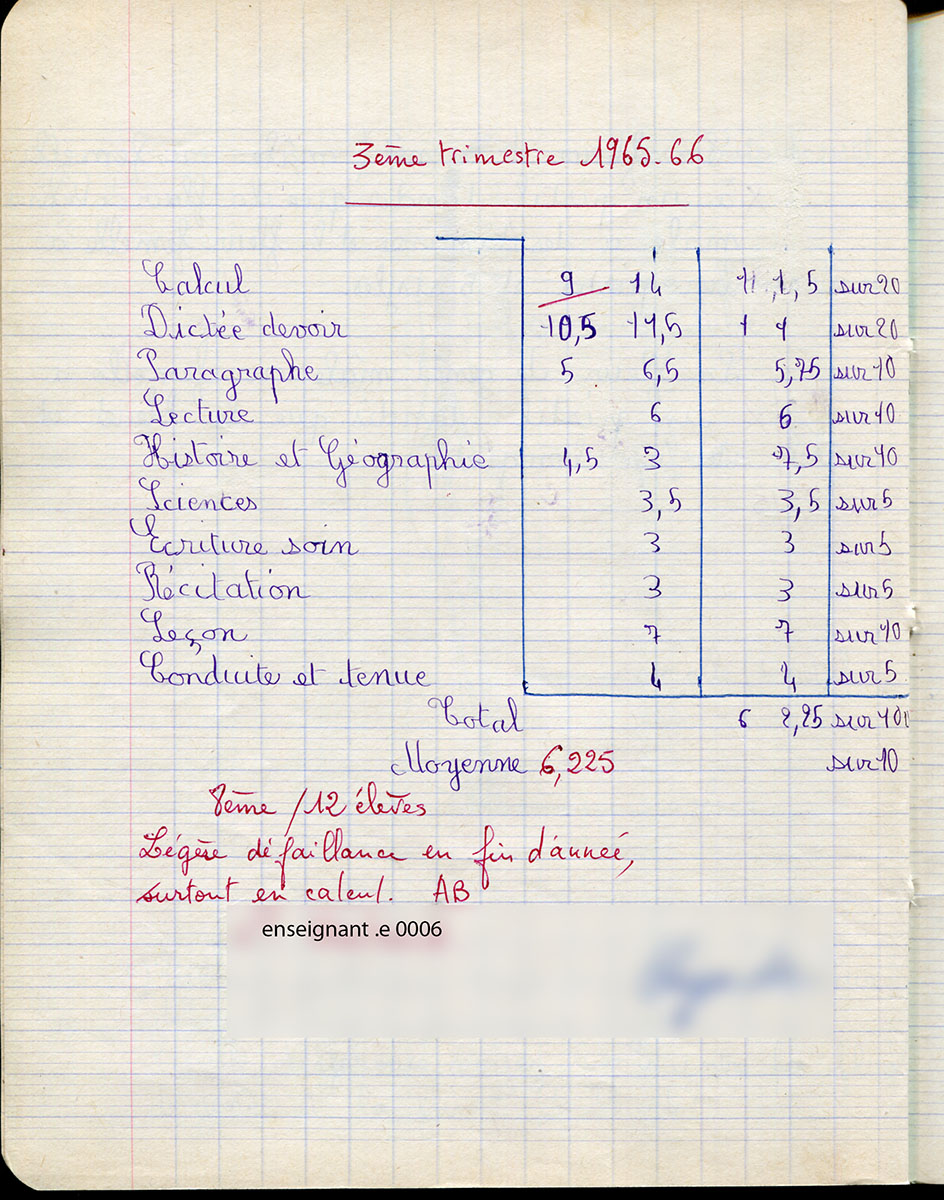 3ème trimestre 1965-66
Calcul 9 14 11,5 sur 20
Dictée devoir 10,5 11,5 11 sur 20
Paragraphe 5 6,5 5,75 sur 10
Lecture 6 6 sur 10
Histoire et Géographie 4,5 3 7,5 sur 10
Sciences 3,5 3,5 sur 5
Ecriture soin 3 3 sur 5
Récitation 3 3 sur 5
Leçon 7 7 sur 10
Conduite et tenue 4 4 sur 5
Total 62,25 sur 10
Moyenne 6,225 sur 10
8ème / 12 élèves
Légère défaillance en fin d'année,
surtout en calcul. AB
enseignant .e 0006